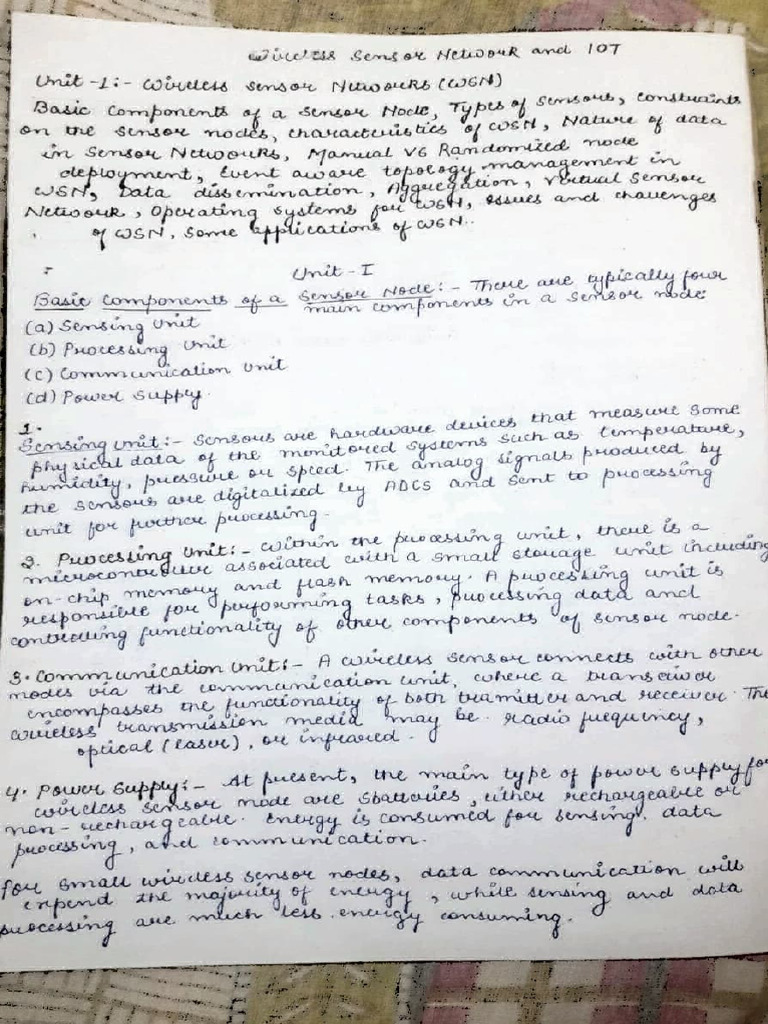 Wireless Sensor Network and IOT
Unit -1:- Wireless sensor Networks (WSN)
Basic Components of a Sensor Node, Types of Sensors, constraints
on the sensor nodes, characteristics of WSN, Nature of data
in Sensor Networks, Manual VS Randomized node
deployment, Event aware topology management in
WSN, Data dissemination, Aggregation, Virtual Sensor
Network, Operating systems for WSN, issues and challenges
of WSN, Some applications of WSN.
Unit - I
Basic Components of a Sensor Node:- There are typically four
main components in a sensor node
(a) Sensing Unit
(b) Processing Unit
(c) Communication Unit
(d) Power Supply.
1.
Sensing Unit:- Sensors are hardware devices that measure some
physical data of the monitored systems such as temperature,
humidity, pressure or speed. The analog signals produced by
the sensors are digitalized by ADCS and sent to processing
unit for further processing.
2. Processing Unit:- Within the processing unit, there is a
microcontroller associated with a small storage unit including
on-chip memory and flash memory. A processing unit is
responsible for performing tasks, processing data and
controlling functionality of other components of sensor node.
3. Communication Unit:- A wireless sensor connects with other
nodes via the communication unit, where a transeiver
encompasses the functionality of both tramitter and receiver. The
wireless transmission media may be radio frequency,
optical (laser), or infrared.
4. Power Supply:- At present, the main type of power supply for
wireless sensor node are batteries, either rechargeable or
non-rechargeable. Energy is consumed for sensing, data
processing, and communication.
For small wireless sensor nodes, data communication will
expend the majority of energy, while sensing and data
processing are much less energy consuming.